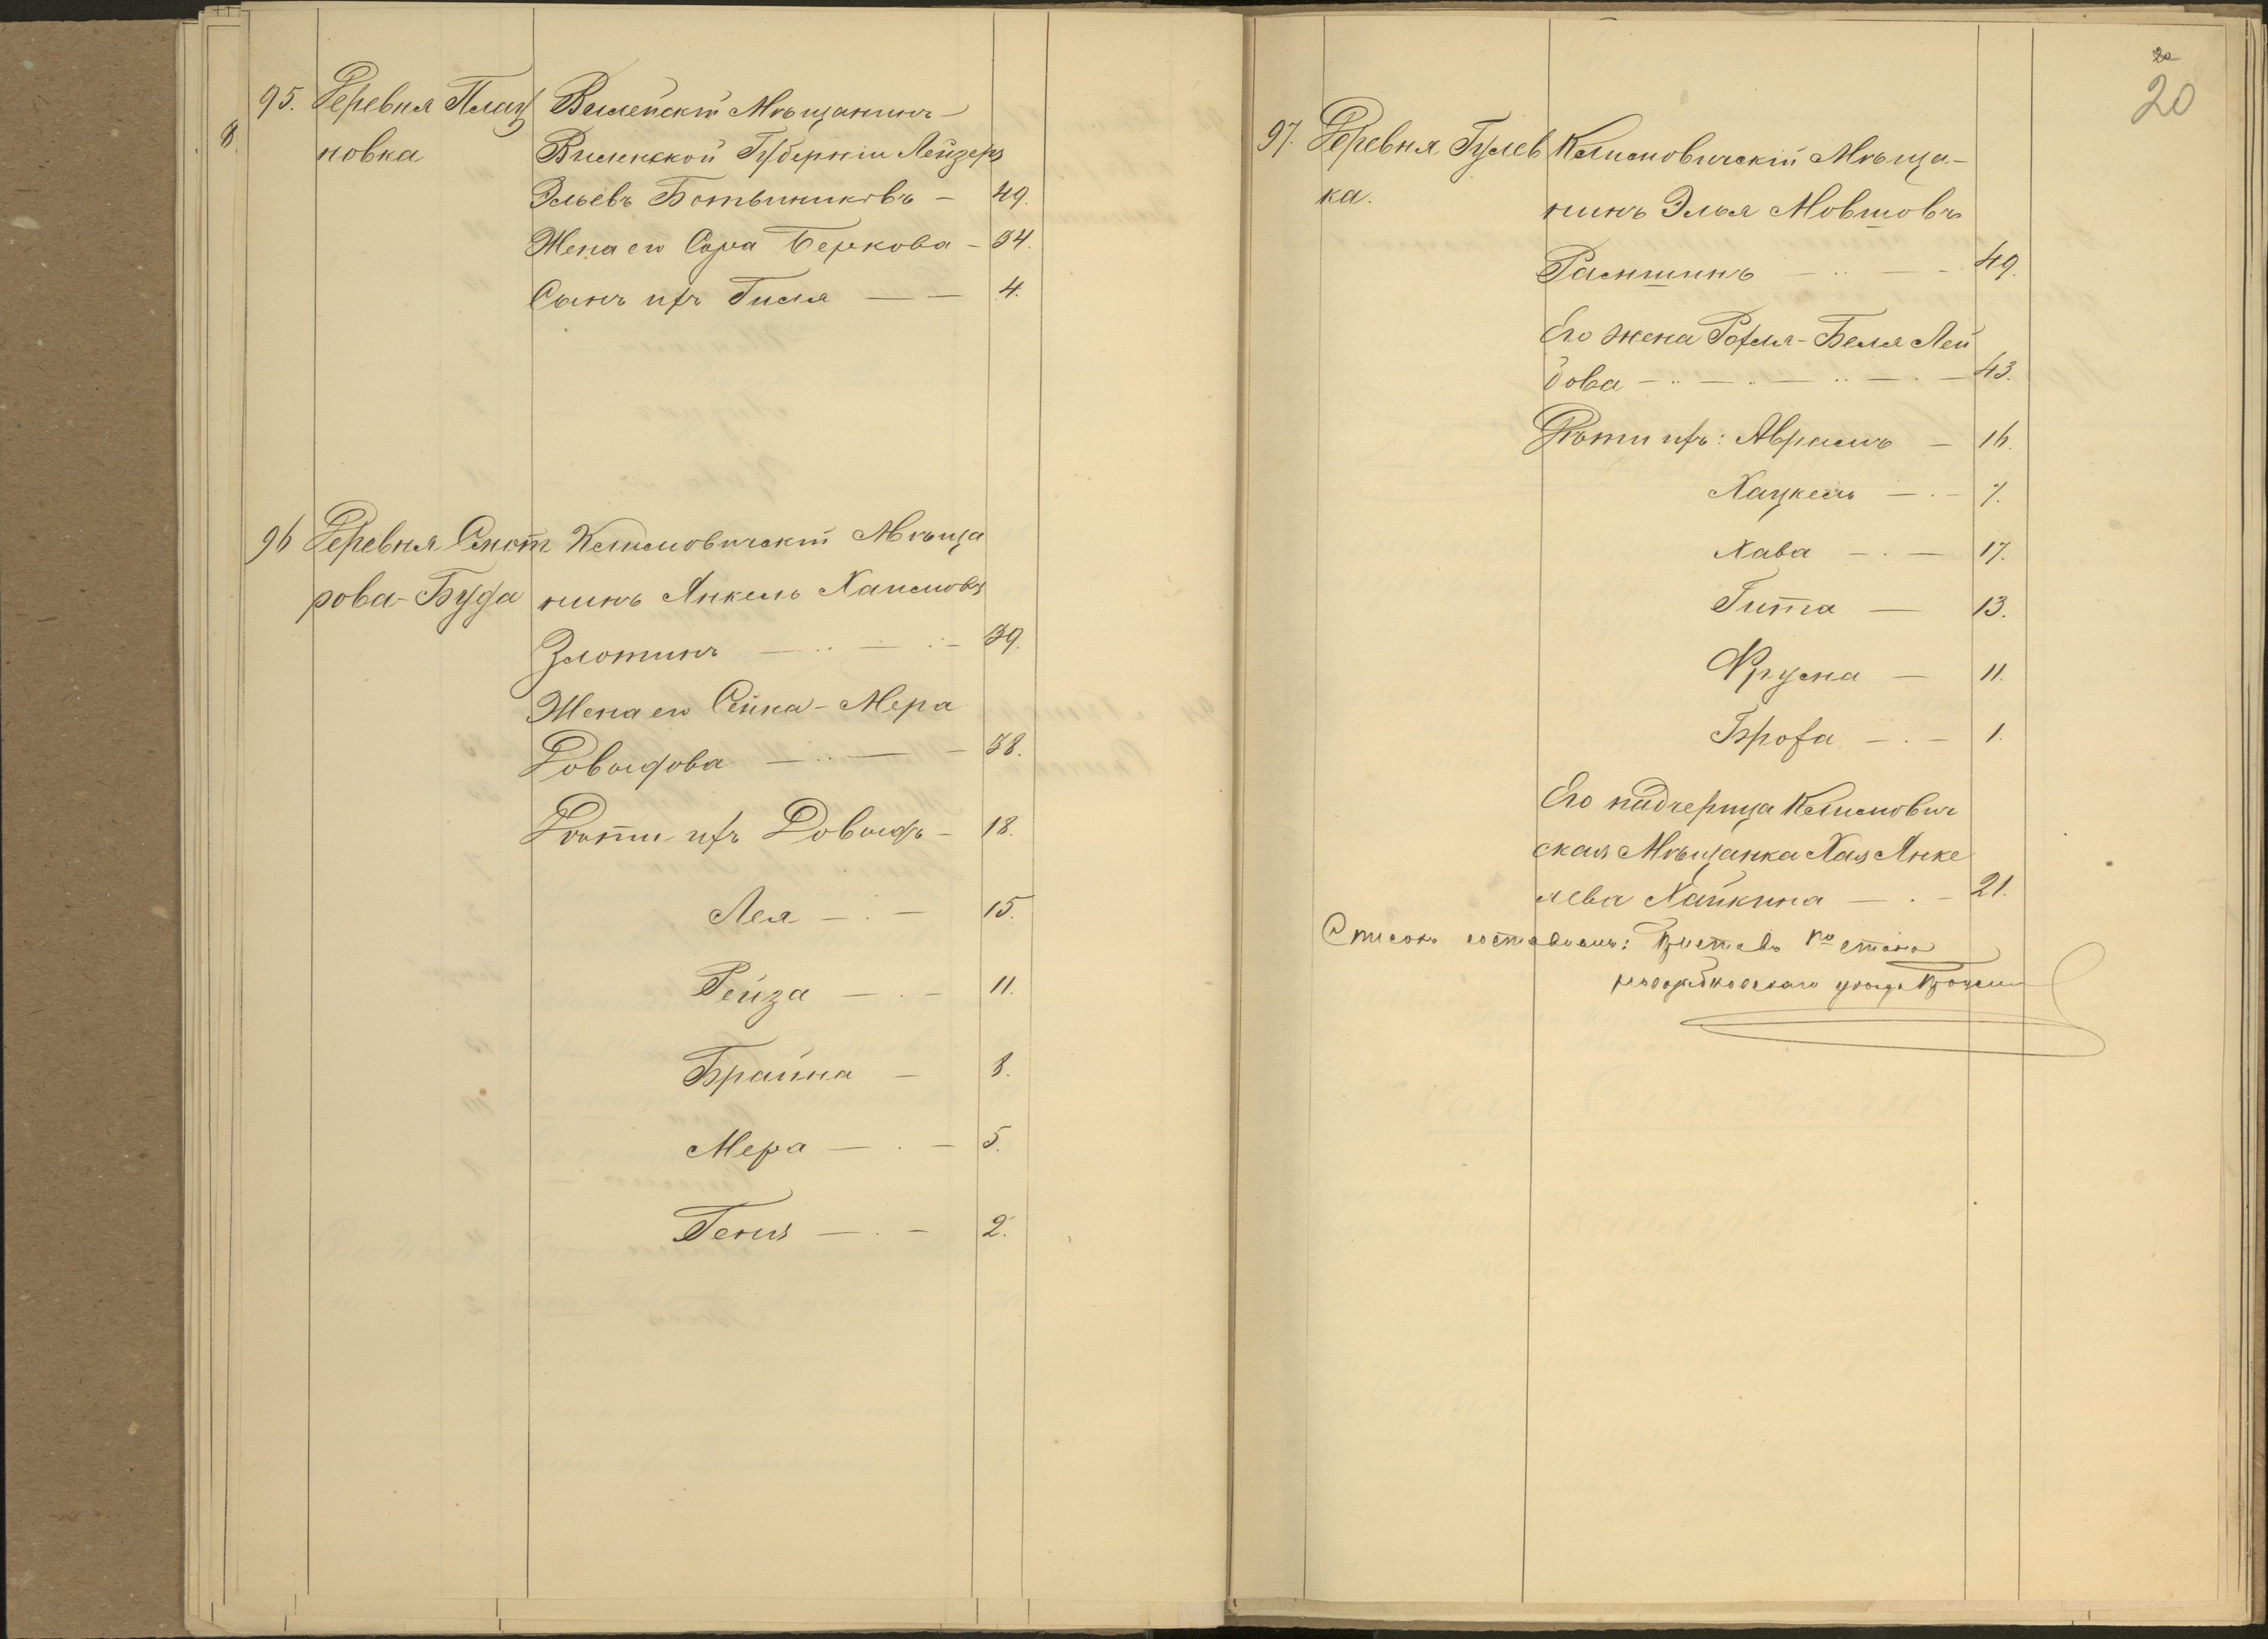 8
95. Деревня Плац Вилейскій Мѣщанинъ
новка Виленской Губерніи Лейзеръ
Эльевъ Ботвинниковъ — 49.
Жена его Сора Беркова — 34.
Сынъ ихъ Гиля — — 4.
96 Деревня Смот Климовичскій Мѣща
рова-Буда нинъ Янкель Хаимовъ
Злотинъ — 39.
Жена его Сейна-Мера
Довыдова — 38.
Дѣти ихъ Довыдъ — 18.
Лея — 15.
Рейза — 11.
Брайна — 8.
Мера — 5.
Геня — 2.
20
20
97. Деревня Гулев Климовичскій Мѣща-
ка. нинъ Элья Мовшовъ
49.
Его жена Рохля-Беля Лей
бова — 43.
Дѣти ихъ: Абрамъ — 16.
Хацкель — 7.
Хава — 17.
Гита — 13.
Фрума — 11.
Броха — 1.
Его падчерица Климович
ская Мѣщанка Хая Янке
лева Хайкина — 21.
Списокъ составилъ: Приставъ стана
уѣзда